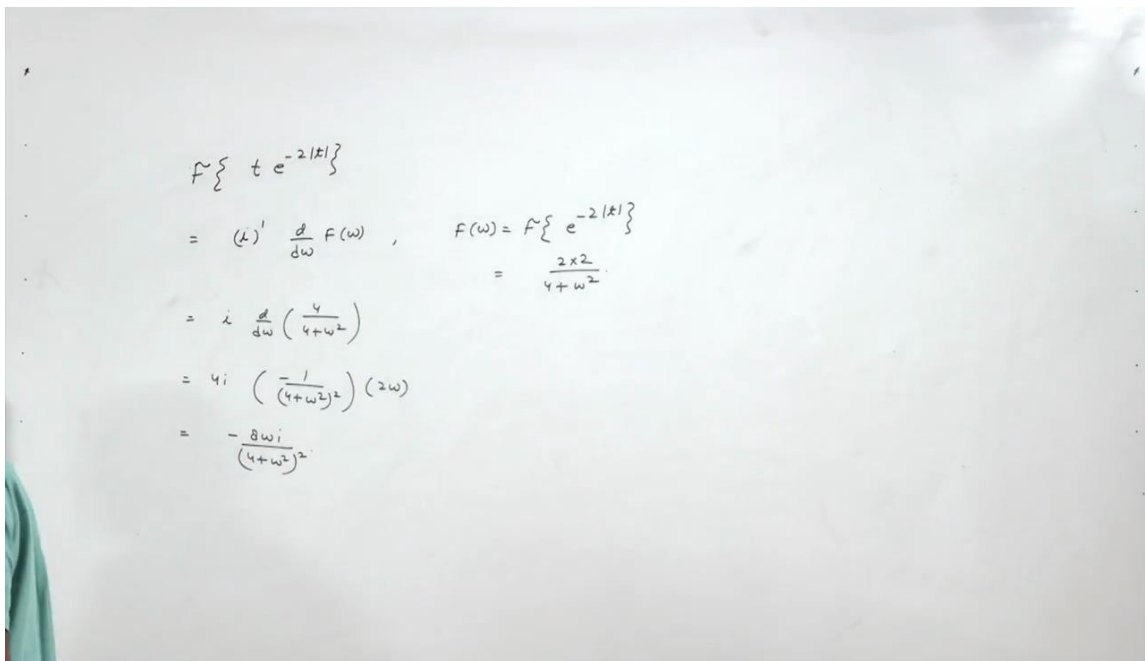 F{ t e^{-2|t|}}
= (i)^1 d/dω F(ω) , F(ω) = F{ e^{-2|t|}}
= 2×2/(4+ω^2).
= i d/dω (4/(4+ω^2))
= 4i (-1/(4+ω^2)^2) (2ω)
= - 8ωi/(4+ω^2)^2.